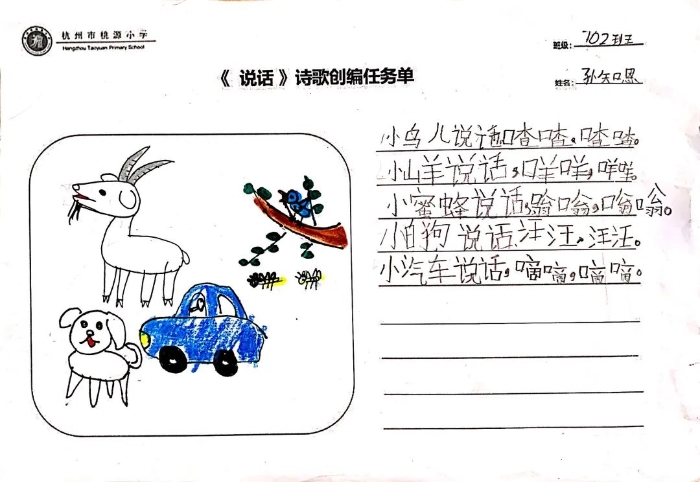 杭州市桃源小学
Hangzhou Taoyuan Primary School
班级：102班
《 说话 》诗歌创编任务单
姓名：孙知恩
小鸟儿说话喳喳，喳喳。
小山羊说话，咩咩，咩咩。
小蜜蜂说话，嗡嗡，嗡嗡。
小白狗说话汪汪，汪汪。
小汽车说话，嘀嘀，嘀嘀。